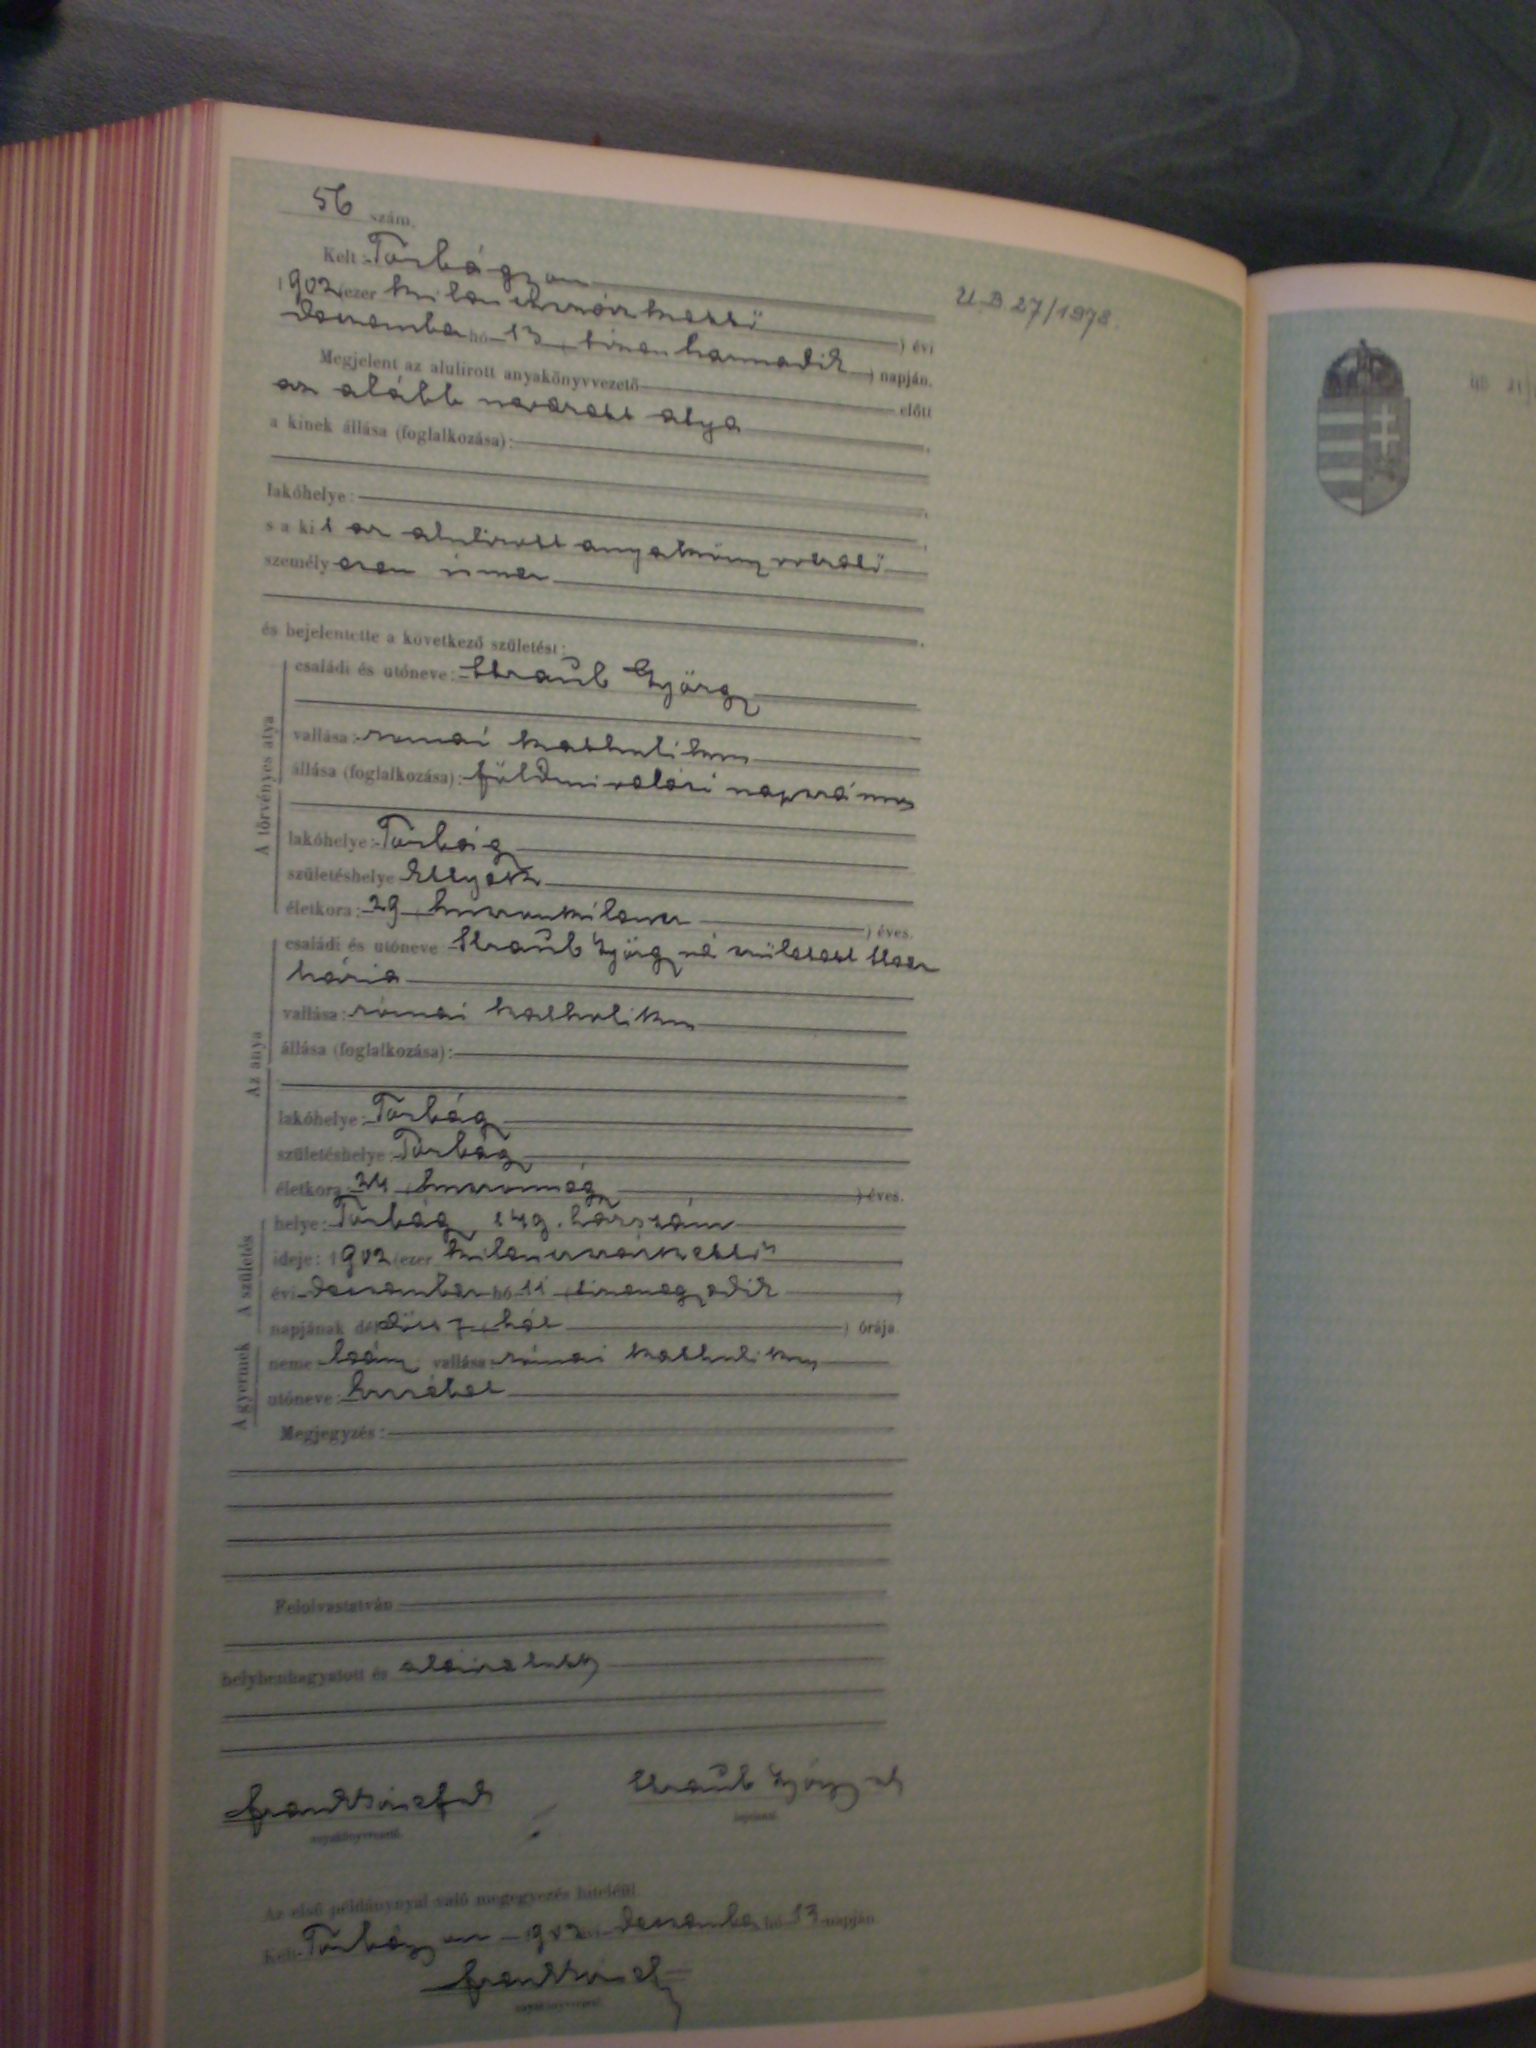 56 szám.
Kelt: Torbágyon
1902 (ezer kilenczszázkettő) évi
December hó 13 (tizenharmadik) napján.
U.B 27/1978.
Megjelent az alulirott anyakönyvvezető előtt
az alább nevezett atya
a kinek állása (foglalkozása):
lakóhelye:
s a kit az alulirott anyakönyvvezető
személyesen ismer
és bejelentette a következő születést:
A törvényes atya
családi és utóneve: Straub György
vallása: római katholikus
állása (foglalkozása): földmivelési napszámos
lakóhelye: Torbágy
születéshelye Etyek
életkora: 29 (huszonkilencz) éves.
Az anya
családi és utóneve Straub Györgyné született
Mária
vallása: római katholikus
állása (foglalkozása):
lakóhelye: Torbágy
születéshelye: Torbágy
életkora: 24 (huszonnégy) éves.
A születés
helye: Torbágy 149. házszám
ideje: 1902 (ezer kilenczszázkettő
évi december hó 11 (tizenegyedik)
napjának délelőtti 7 (hét) órája
A gyermek
neme: leány; vallása: római katholikus
utóneve: Erzsébet
Megjegyzés:
Felolvastatván
helybenhagyatott és aláiratott
Straub György
anyakönyvvezető. bejelentő.
Az első példánynyal való megegyezés hiteléül.
Kelt Torbágyon 1902 évi December hó 13 napján
anyakönyvvezető.